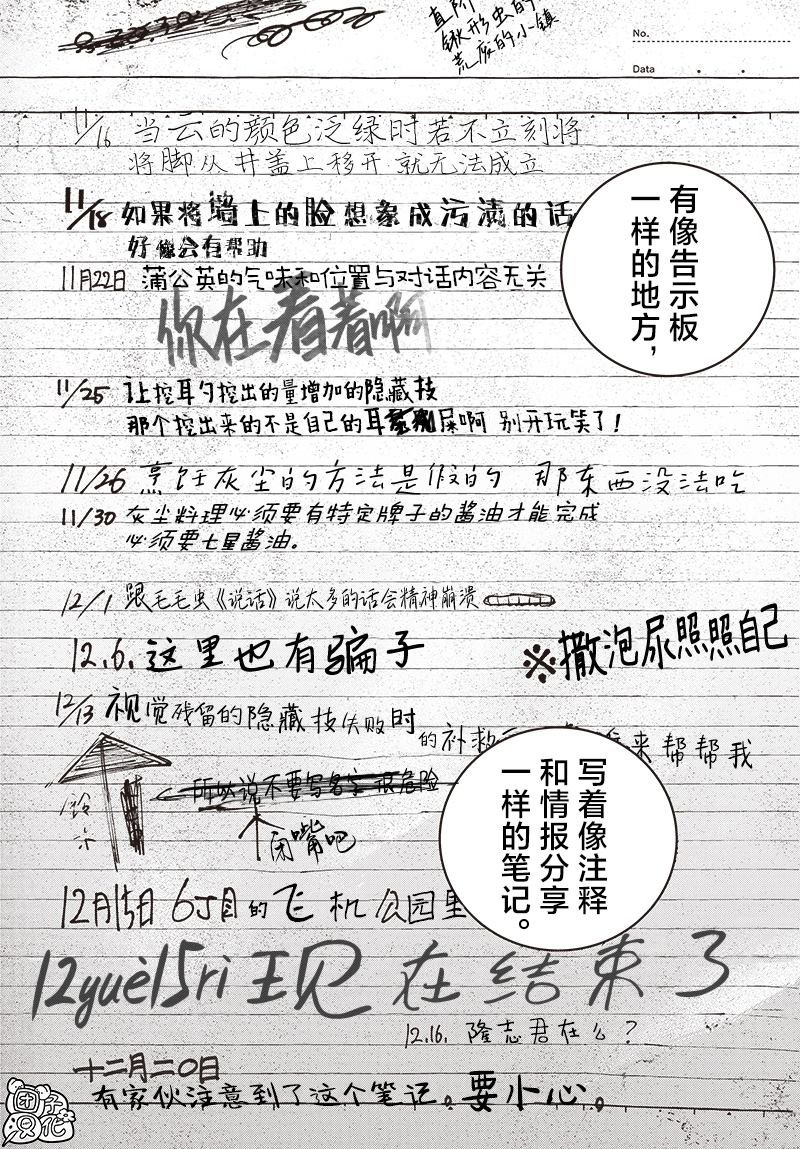 直阶
锹形虫的
荒废的小镇
No.
Data
11/16 当云的颜色泛绿时若不立刻将
将脚从井盖上移开就无法成立
有像告示板
一样的地方，
11/18 如果将墙上的脸想象成污渍的话
好像会有帮助
11月22日 蒲公英的气味和位置与对话内容无关
你在看着啊
11/25 让挖耳勺挖出的量增加的隐藏技
那个挖出来的不是自己的耳屎啊 别开玩笑了！
11/26 烹饪灰尘的方法是假的 那东西没法吃
11/30 灰尘料理必须要有特定牌子的酱油才能完成
必须要七星酱油。
12/1 跟毛毛虫《说话》说太多的话会精神崩溃
12.6. 这里也有骗子
※撒泡尿照照自己
12/13 视觉残留的隐藏技失败时
的补救 来帮帮我
铃
所以说不要写名字 很危险
闭嘴吧
写着像注释
和情报分享
一样的笔记。
12月15日 6丁目的飞机公园里
12yuè15rì 现在结束了
12.16. 隆志君在么？
十二月二〇日
有家伙注意到了这个笔记。要小心。
团子汉化